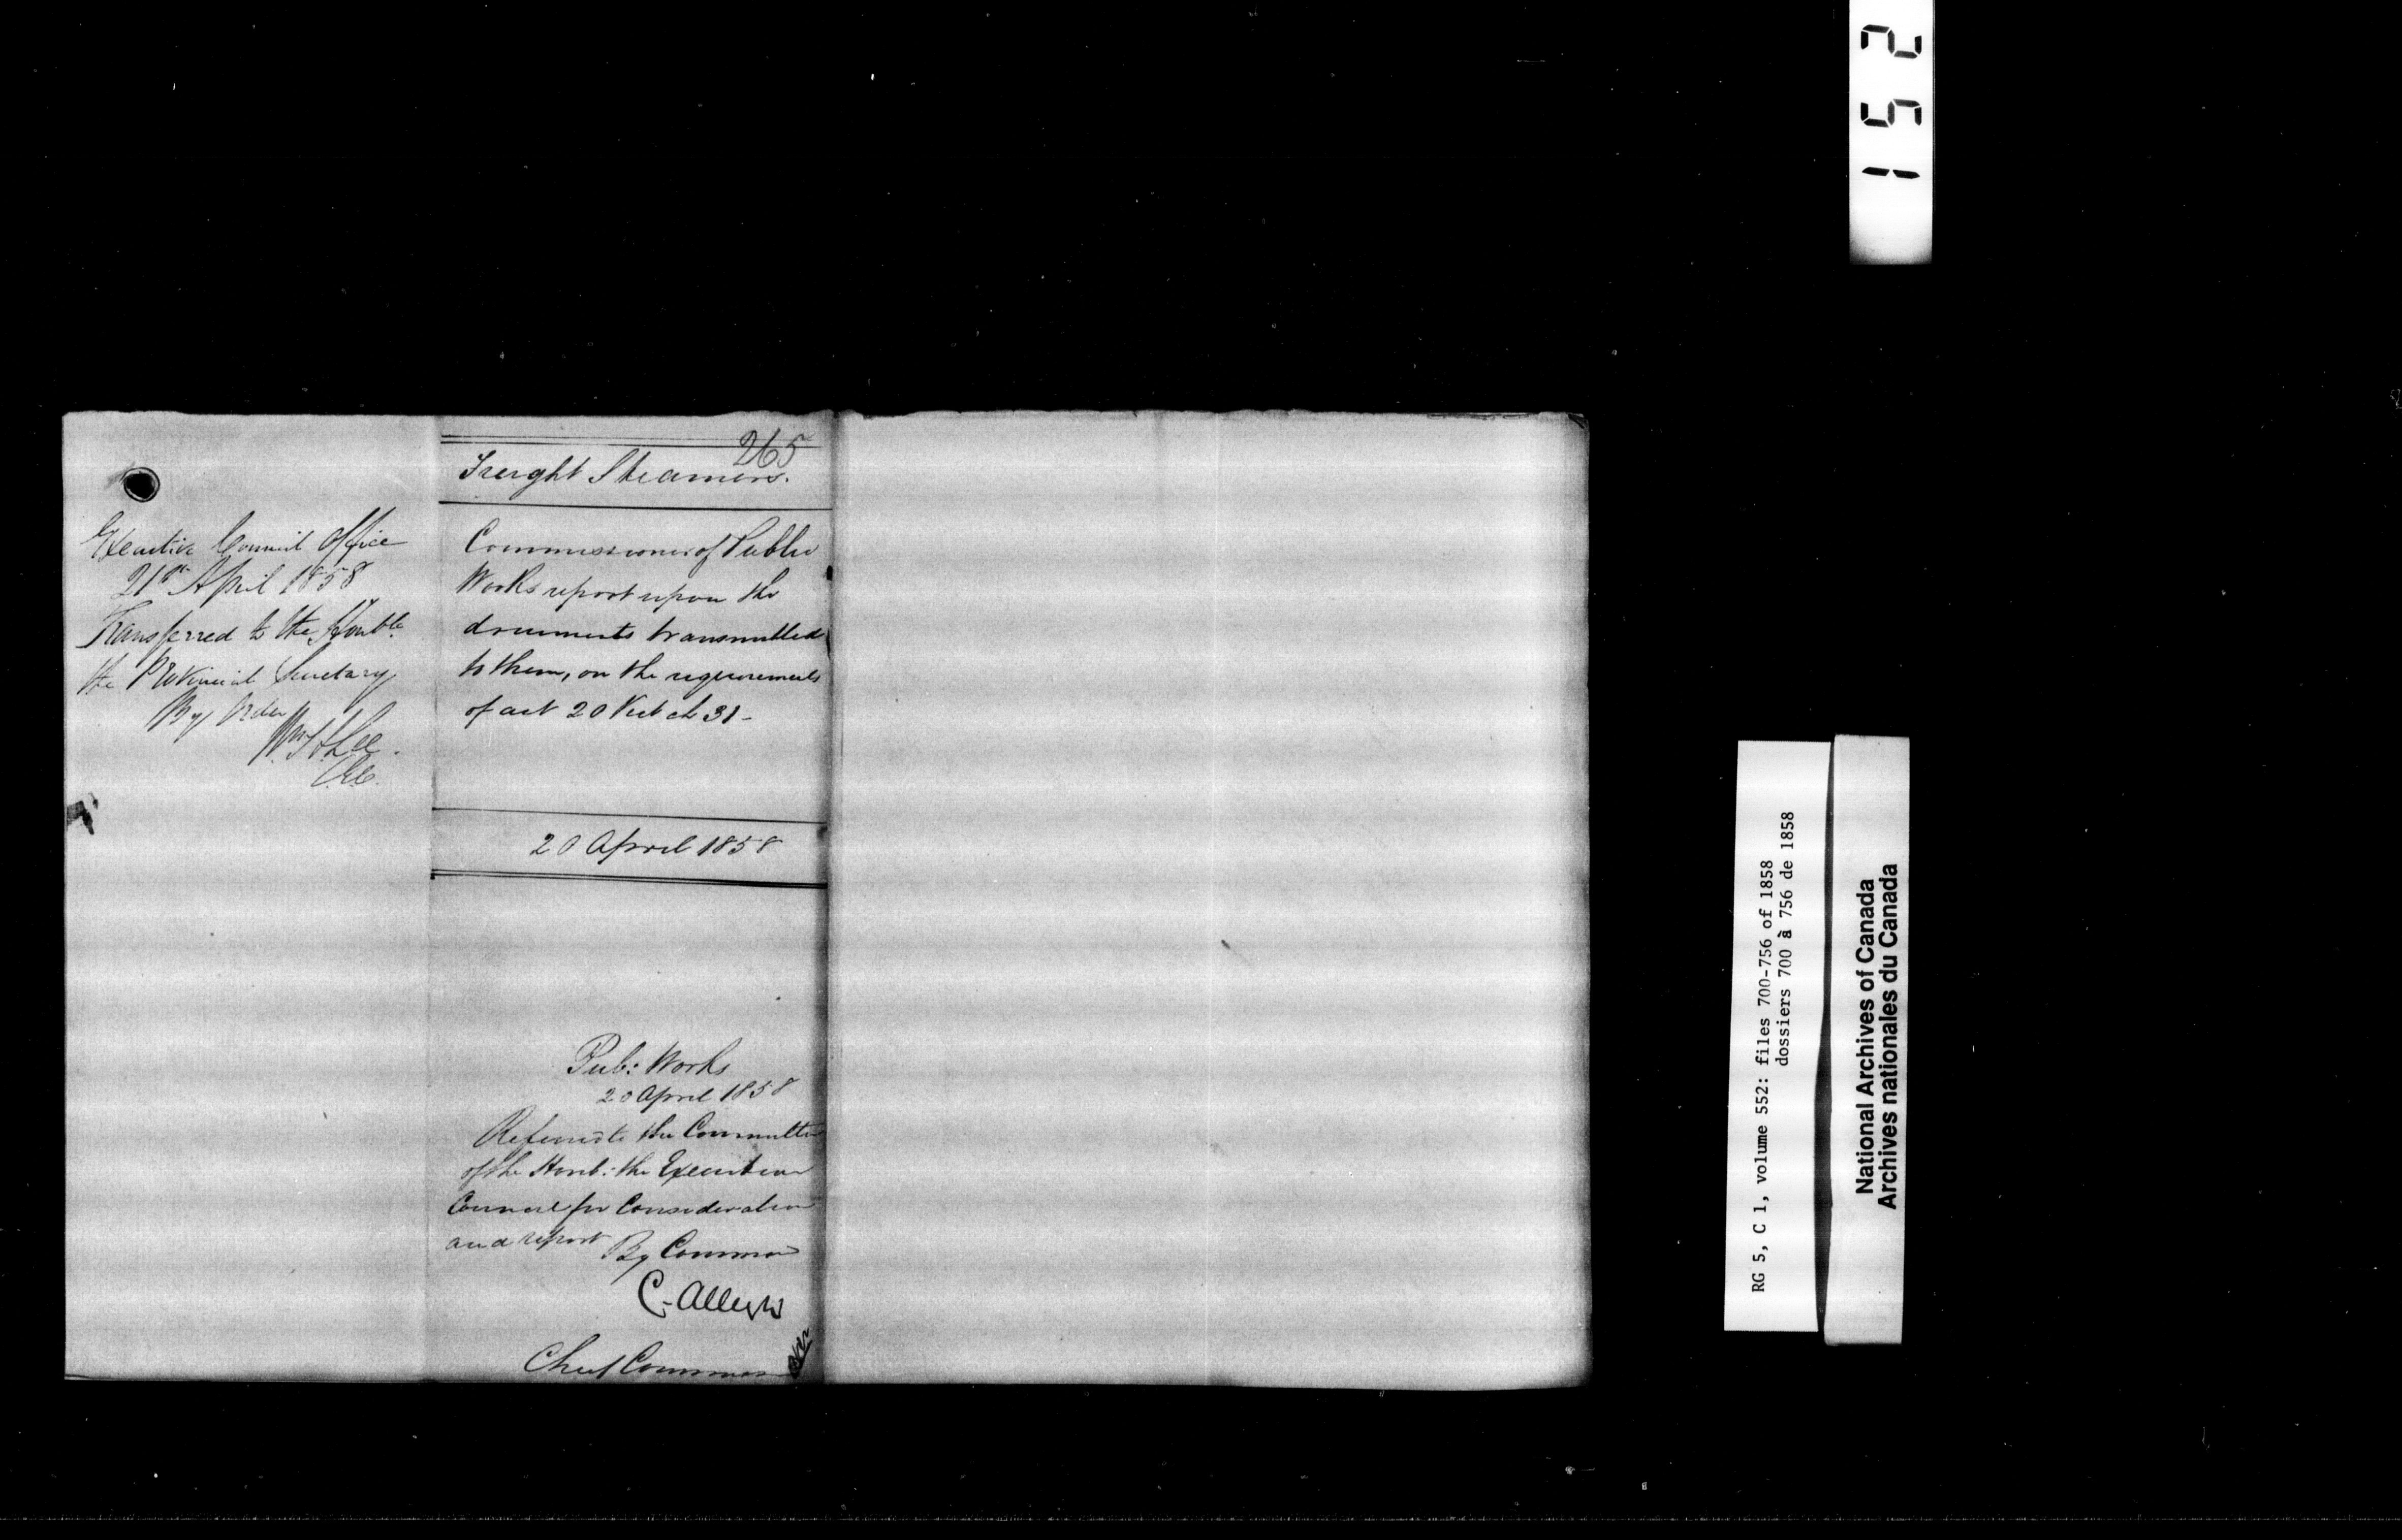 Executive Council Office
21st April 1858
Transferred to the Honble
the Provincial Secretary
By Order
Wm H Lee
C.E.C.
265
Freight Steamers.
Commissioners of Public
Works report upon the
documents transmitted
to them, on the requirements
of act 20 Vict ch 31-
20 April 1858
Pub: Works
20 April 1858
Referred to the Committee
of the Honb: the Executive
Council for Consideration
and report
By Command
C. Alleyn
Chief Commr
152
RG 5, C 1, volume 552: files 700-756 of 1858
dossiers 700 à 756 de 1858
National Archives of Canada
Archives nationales du Canada